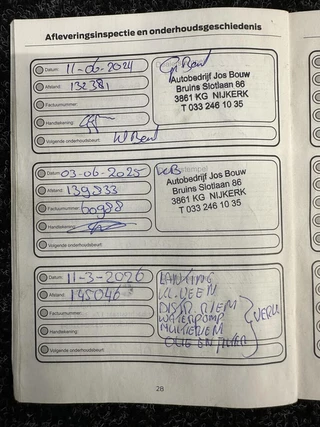 Afleveringsinspectie en onderhoudsgeschiedenis
Datum: 11-06-2024
Afstand:
Factuurnummer:
Handtekening:
Volgende onderhoudsbeurt:
Autobedrijf Jos Bouw
Bruins Slotlaan 86
3861 KG NIJKERK
T 033 246 10 35
Datum: 03-06-2025
Afstand: 139833
Factuurnummer:
Handtekening:
Volgende onderhoudsbeurt:
Autobedrijf Jos Bouw
Bruins Slotlaan 86
3861 KG NIJKERK
T 033 246 10 35
Datum: 11-3-2026
Afstand: 145046
Factuurnummer:
Handtekening:
Volgende onderhoudsbeurt:
DISTR RIEM
WATERPOMP
MULTIRIEM
OLIE EN FILTER
28